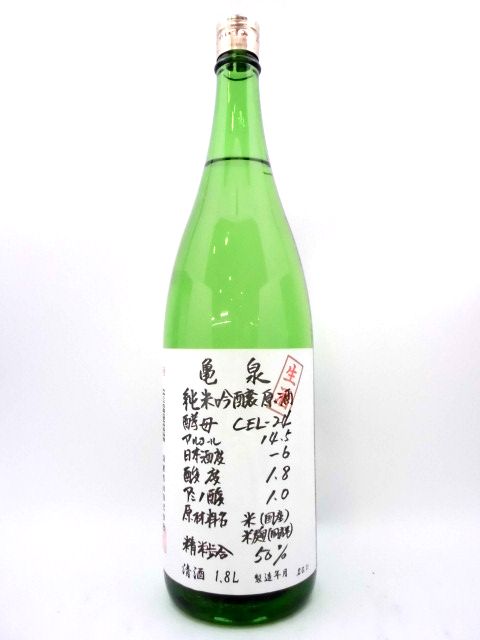 亀泉
生酒
純米吟醸原酒
酵母 CEL-24
アルコール 14.5
日本酒度 -6
酸度 1.8
アミノ酸 1.0
原材料名 米(国産)
米麹(国産米)
精米歩合 50%
清酒 1.8L 製造年月